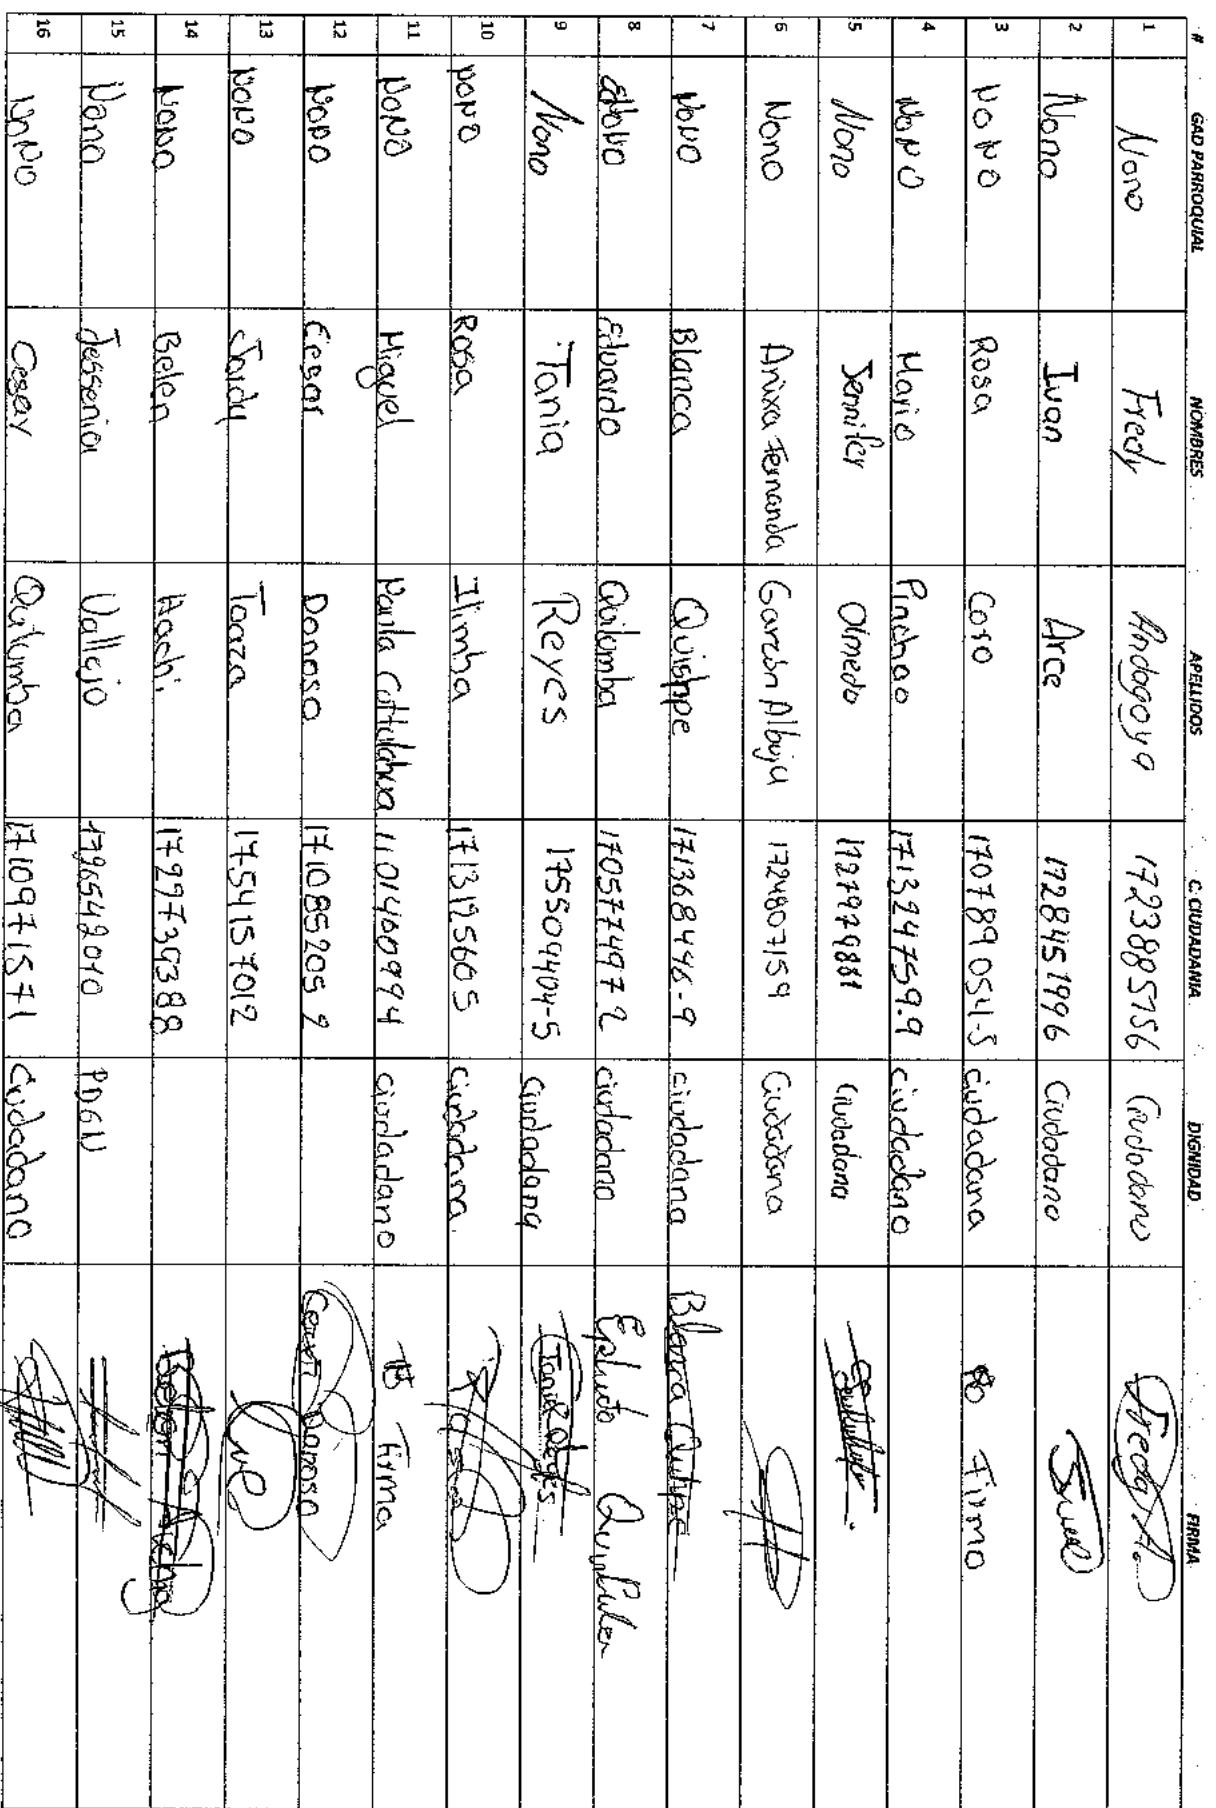 # GAD PARROQUIAL NOMBRES APELLIDOS C. CIUDADANIA DIGNIDAD FIRMA
1 Nono Fredy Andagoya 1723885756 Ciudadano Fredy A.
2 Nono Ivan Arce 1728451996 Ciudadano
3 NONO Rosa Coro 170789054-5 ciudadana Firmo
4 NONO Mario Pinchao 171324759.9 ciudadano
5 Nono Jennifer Olmedo 1727979881 ciudadana
6 Nono Anixa Fernanda Garzón Albuja 1724807159 Ciudadana
7 NONO Blanca Quishpe 171368446-9 ciudadana Blanca Quishpe
8 NONO Eduardo Quilumba 170577497 2 ciudadano
9 Nono Tania Reyes 175509404-5 Ciudadana Tania Reyes
10 NONO Rosa Ilimba 1713125605 ciudadana
11 NONO Miguel 1101460994 ciudadano Firma
12 NONO Cesar Donoso 171085205 2 Cesar Donoso
13 NONO Jordy Toaza 1754157012
14 NONO Belen 1727739388 Belen
15 Nono Jessenia Vallejo PDGN
16 NONO Cesar Quilumba 1710971571 Ciudadano